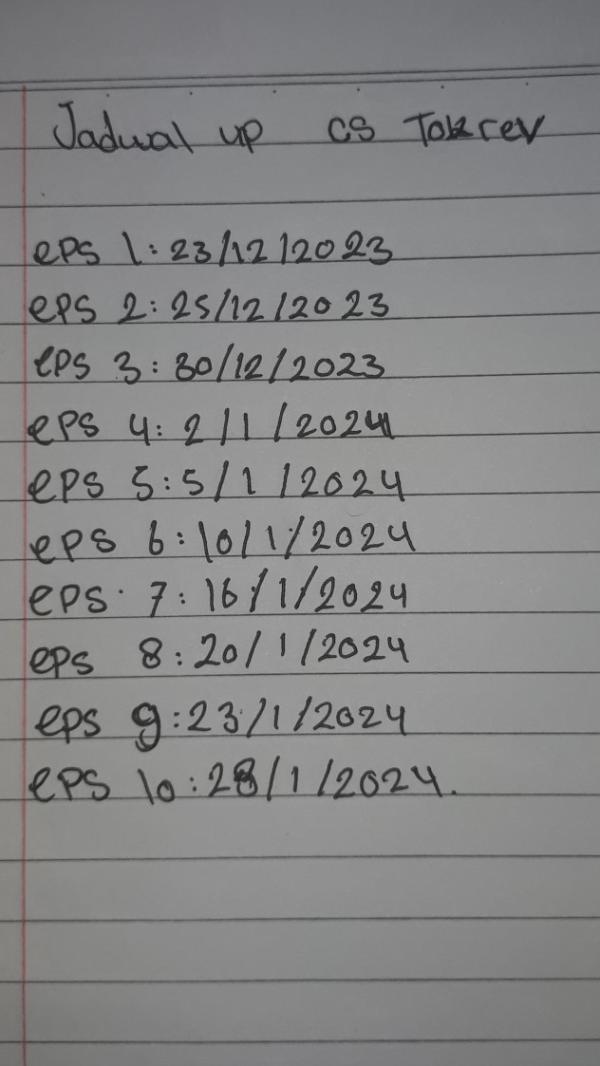 Jadwal up cs Tokrev
eps 1: 23/12/2023
eps 2: 25/12/2023
eps 3: 30/12/2023
eps 4: 2/1/2024
eps 5: 5/1/2024
eps 6: 10/1/2024
eps 7: 16/1/2024
eps 8: 20/1/2024
eps 9: 23/1/2024
eps 10: 28/1/2024.